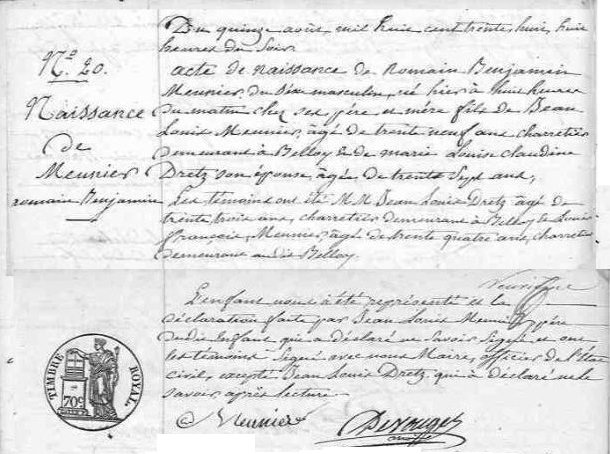 Du quinze août mil huit cent trente huit, huit
heures du Soir
Nº. 20.
Naissance
de
Meunier
romain Benjamin
acte de naissance de Romain Benjamin
Meunier du Sexe masculin, né hier à huit heures
du matin chez ses père et mère fils de Jean
Louis Meunier, agé de trente neuf ans charretier
demeurant à Belloy & de marie Louise Claudine
Dretz son épouse, agée de trente Sept ans,
Les témoins ont été M.M. Jean Louis Dretz agé de
trente trois ans, charretier demeurant à Belloy, et Louis
françois, Meunier, agé de trente quatre ans, charretier
demeurant au dit Belloy.
L'enfant nous a été représenté et la
déclaration faite par Jean Louis Meunier père
dudit Enfant qui a déclaré ne Savoir Signé et ont
les témoins Signé avec nous Maire, officier de l'état
civil, excepté Jean Louis Dretz qui à déclaré ne le
Savoir après lecture.
TIMBRE ROYAL
70c
Meunier